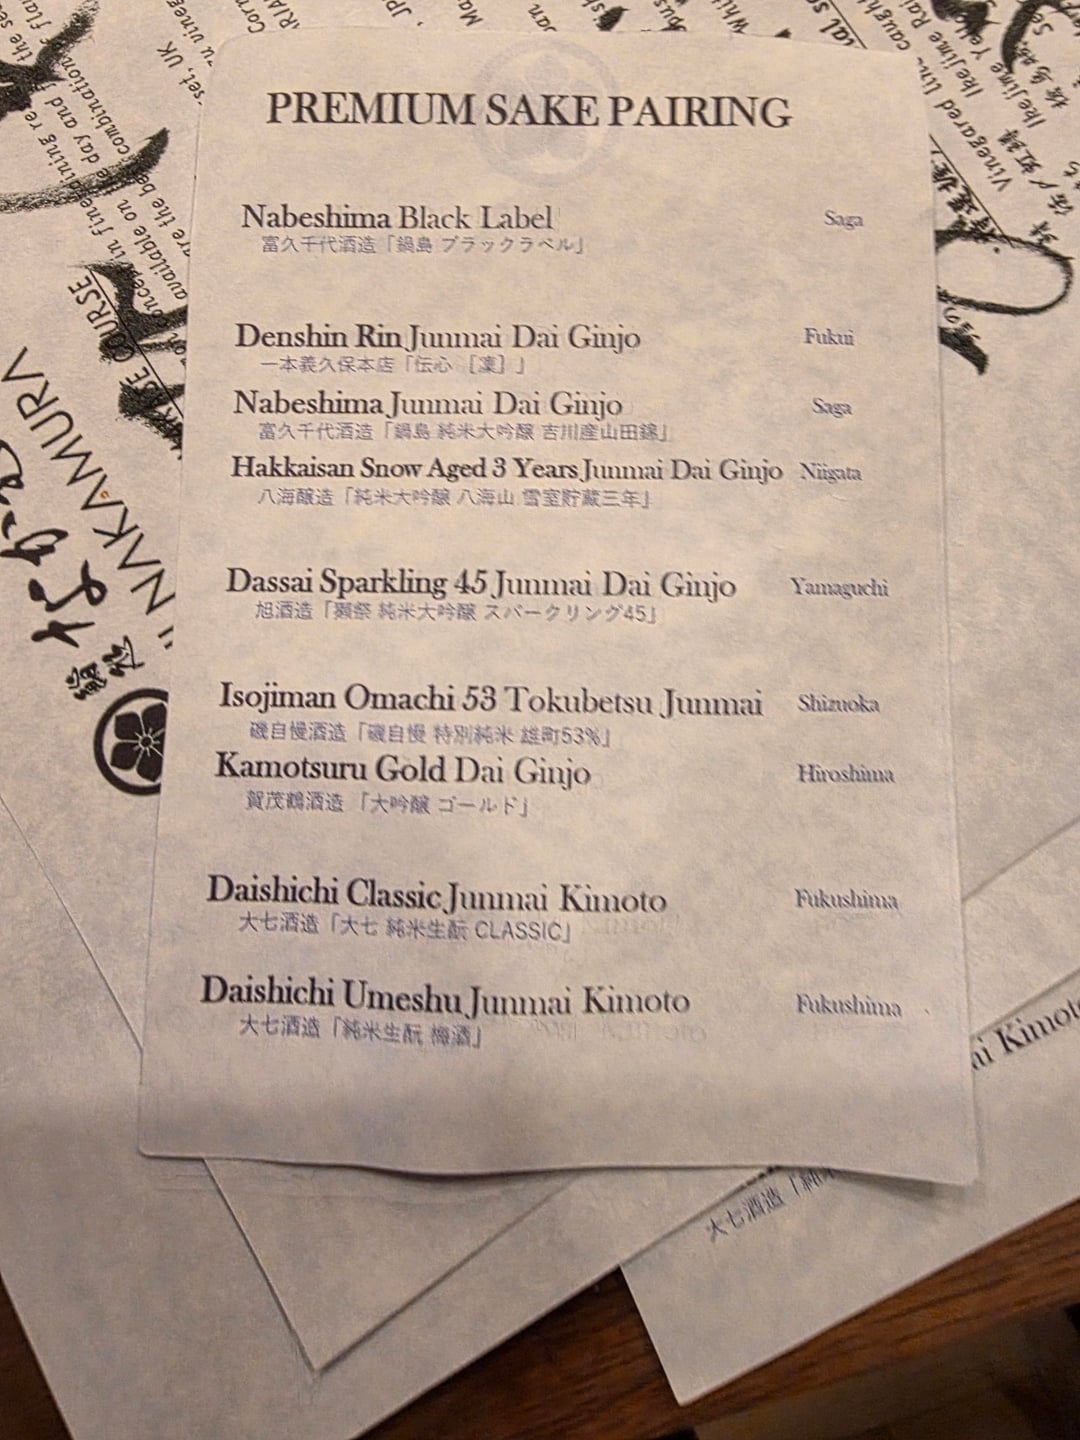 PREMIUM SAKE PAIRING
Nabeshima Black Label Saga
富久千代酒造「鍋島 ブラックラベル」
Denshin Rin Junmai Dai Ginjo Fukui
一本義久保本店「伝心 [凜]」
Nabeshima Junmai Dai Ginjo Saga
富久千代酒造「鍋島 純米大吟醸 吉川産山田錦」
Hakkaisan Snow Aged 3 Years Junmai Dai Ginjo Niigata
八海醸造「純米大吟醸 八海山 雪室貯蔵三年」
Dassai Sparkling 45 Junmai Dai Ginjo Yamaguchi
旭酒造「獺祭 純米大吟醸 スパークリング45」
Isojiman Omachi 53 Tokubetsu Junmai Shizuoka
磯自慢酒造「磯自慢 特別純米 雄町53%」
Kamotsuru Gold Dai Ginjo Hiroshima
賀茂鶴酒造 「大吟醸 ゴールド」
Daishichi Classic Junmai Kimoto Fukushima
大七酒造「大七 純米生酛 CLASSIC」
Daishichi Umeshu Junmai Kimoto Fukushima
大七酒造「純米生酛 梅酒」
NAKAMURA
なかむら
COURSE
available on the day and
combination
Vinegared
Ikejime
Kimoto
大七酒造